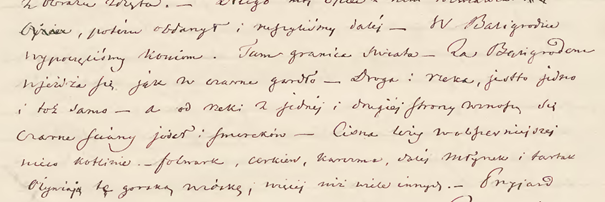 z obrazu zdjęta. — mój
, potém obdarzył i ruszyliśmy daléj — W Baligrodzie
wypoczęliśmy koniom. Tam granica świata — Za Baligrodem
wjeżdża się jak w czarne gardło — Droga i rzeka, jestto jedno
i toż samo — a od rzeki z jednéj i drugiéj strony wznoszą się
czarne ściany jodeł i smereków — Cisna leży w obszerniejszéj
nieco kotlinie. — folwark, cerkiew, karczma, daléj młynek i tartak
Ożywiają tę gorską wioskę, więcéj niż wiele innych. — Przyjazd